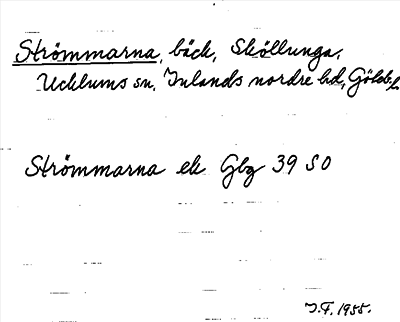 Strömmarna, bäck, Sköllunga,
Ucklums sn, Inlands nordre hd, Götebl.
Strömmarna ek Gbg 39 SO
I.F. 1955.